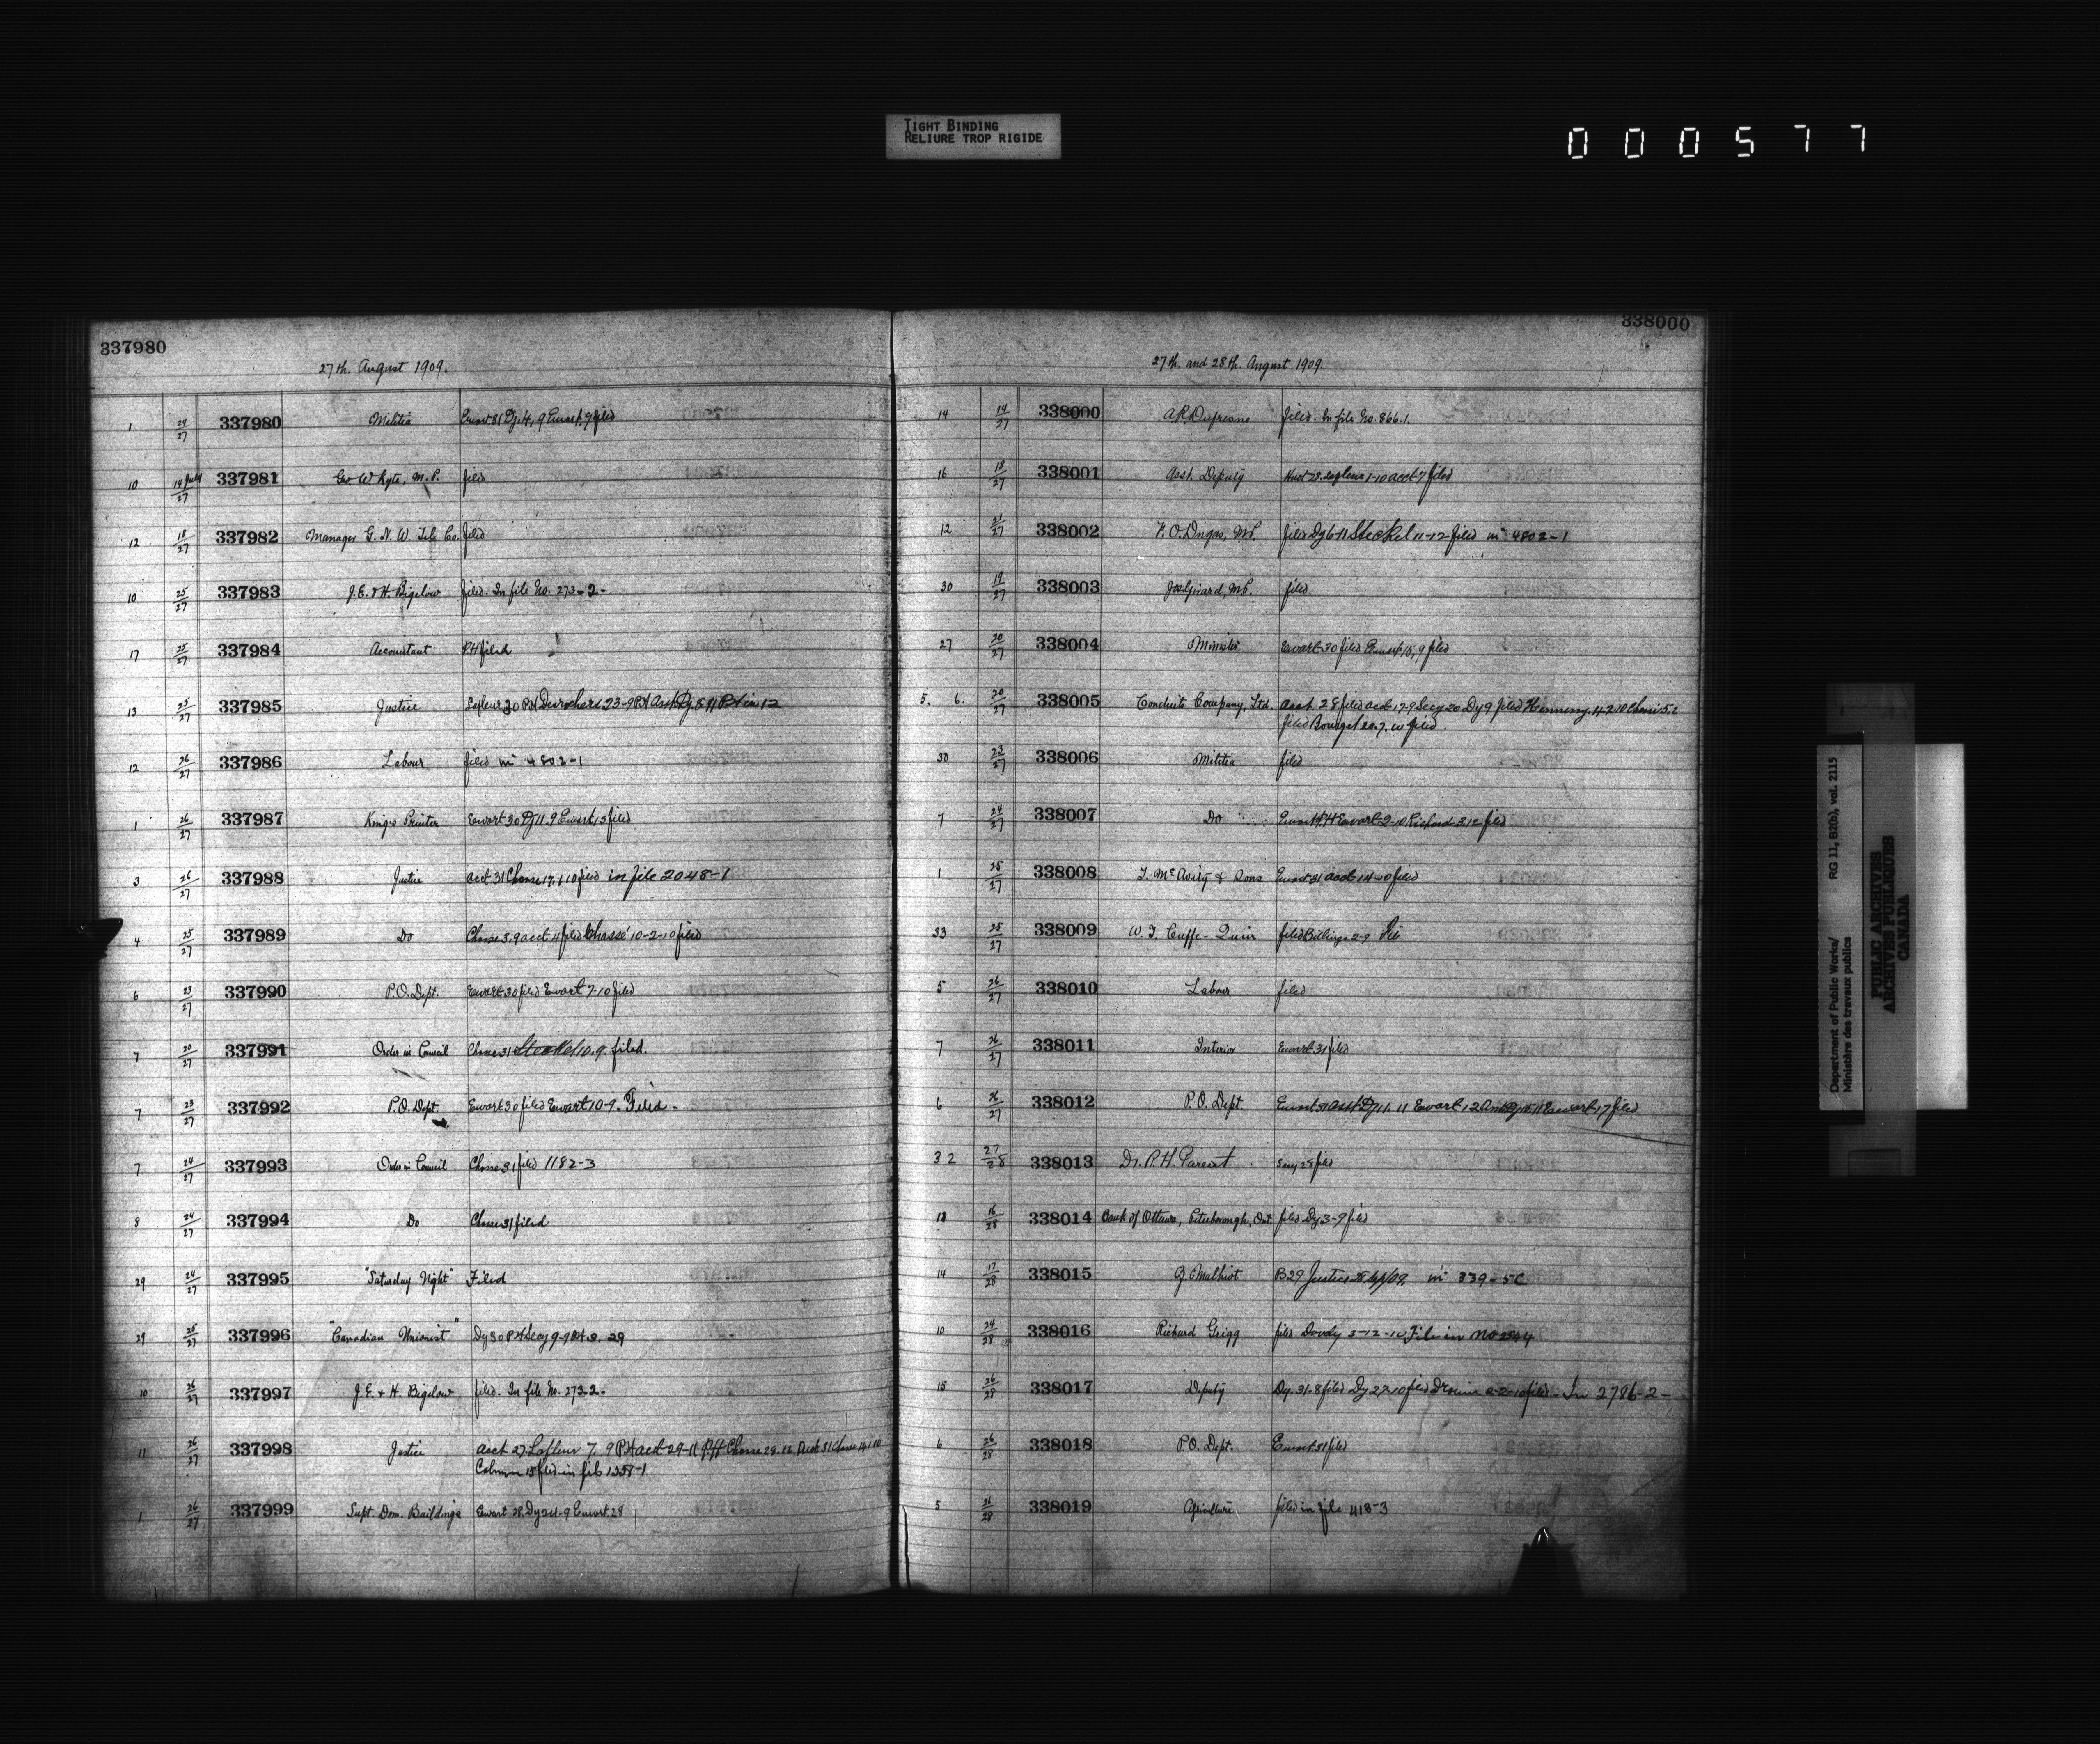 TIGHT BINDING
RELIURE TROP RIGIDE
000577
337980
27th. August 1909.
1 24/27 337980 Militia Ewart 31 Dy. 4, 9 Ewart, 9 filed
10 14 July/27 337981 Geo Whyte, M.P. filed
12 18/27 337982 Manager G. N. W. Tel. Co. filed
10 25/27 337983 J.E. & H. Bigelow filed. In file No. 273-2-
17 25/27 337984 Accountant PH filed
13 25/27 337985 Justice Lafleur 30 PH Desrochers 23-9 PH Asst Dy. 8 11 12
12 26/27 337986 Labour filed in 4802-1
1 26/27 337987 King's Printer Ewart 30 Dy 11.9 Ewart, 13 filed
3 26/27 337988 Justice acct 31 Chasse 17, 1 10 filed in file 2048-1
4 25/27 337989 Do Chasse 3.9 acct 11 filed Chassé 10-2-10 filed
6 23/27 337990 P.O. Dept. Ewart 30 filed Ewart 7-10 filed
7 20/27 337991 Order in Council Chasse 31 Steckel 10.9. filed.
7 23/27 337992 P.O. Dept. Ewart 30 filed Ewart 10-9. Filed.
7 24/27 337993 Order in Council Chasse 31 filed 1182-3
8 24/27 337994 Do Chasse 31 filed
29 24/27 337995 "Saturday Night" Filed
29 25/27 337996 "Canadian Unionist" Dy 30 PH Secy 9-9 PH 9, 29
10 26/27 337997 J.E. & H. Bigelow filed. In file No. 273-2-
11 26/27 337998 Justice acct 27 Lafleur 7. 9 PH acct 29-11 PH Chasse 29.12 Acct 31 Chasse 14.1.10
15 filed in file 1358-1
1 26/27 337999 Supt. Dom. Buildings Ewart 28. Dy 24-9 Ewart 28
338000
27th. and 28th. August 1909.
14 14/27 338000 A.R. Dufresne filed. In file No. 866.1.
16 18/27 338001 Asst. Deputy Lafleur 1-10 acct 7 filed
12 21/27 338002 F.O. Dugas, M.P. filed Dy 6-11 Steckel 11-12 filed in 4802-1
30 19/27 338003 Jos Girard, M.P. filed
27 20/27 338004 Minister Ewart 30 filed Ewart, 15, 9 filed
5. 6. 20/27 338005 Conduits Company, Ltd. acct 28 filed acct 17-9 Secy 20 Dy 9 filed Hennessy. 4-2-10 Chasse 5.2
filed Bourget 20.7.10 filed
30 23/27 338006 Militia filed
7 24/27 338007 Do Ewart PH Ewart 2-10 Richard 3.12 filed
1 25/27 338008 T. McAvity & Sons Ewart 31 acct 14-10 filed
33 25/27 338009 W. T. Cuffe-Quin filed Billings 2-9
5 26/27 338010 Labour filed
7 26/27 338011 Interior Ewart 31 filed
6 26/27 338012 P.O. Dept. Ewart 31 Asst Dy 11. 11 Ewart 12 Asst Dy 15. 11 Ewart 17 filed
32 27/28 338013 Dr. P. H. Parent Secy 28 filed
18 16/28 338014 Bank of Ottawa, Peterborough, Ont filed Dy 3-9 filed
14 17/28 338015 Z. Malhiot B29 Justice 28 Sep/09. in 339-5C
10 24/28 338016 Richard Grigg filed Dowdy 3-12-10 File in No 2544
15 26/28 338017 Deputy Dy. 31-8 filed Dy 27-10 filed 2-2-10 filed - In 2786-2-
6 26/28 338018 P.O. Dept. Ewart 31 filed
5 26/28 338019 Agriculture filed in file 418-3
Department of Public Works/ RG 11, B2(b), vol. 2115
Ministère des travaux publics
PUBLIC ARCHIVES
ARCHIVES PUBLIQUES
CANADA